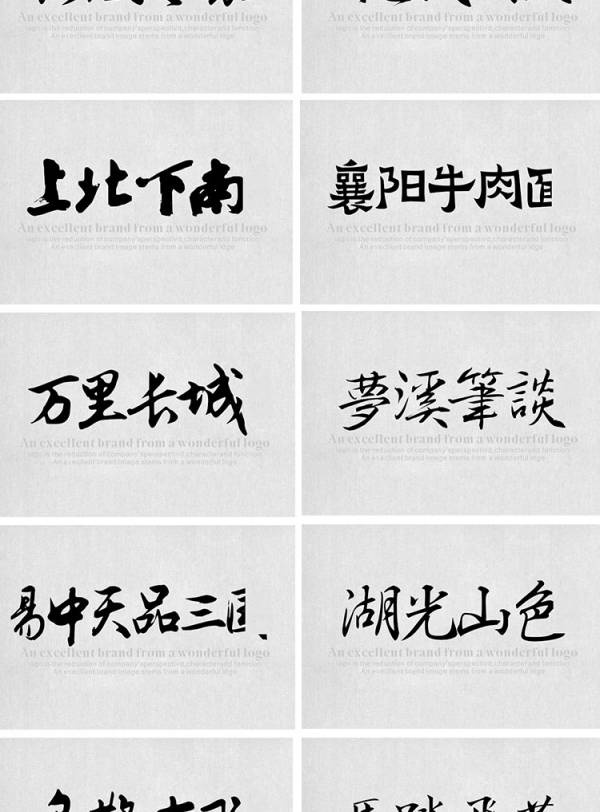 An excellent brand from a wonderful logo
An excellent brand from a wonderful logo
logo is the reduction of company'sperspectivd,characterand function
An excellent brand image stems from a wonderful logo
An excellent brand image stems from a wonderful logo
上北下南
An excellent brand from a wonderful logo
logo is the reduction of company'sperspectivd,characterand function
An excellent brand image stems from a wonderful logo
襄阳牛肉面
An excellent brand from a wonderful logo
logo is the reduction of company'sperspectivd,characterand function
An excellent brand image stems from a wonderful logo
万里长城
An excellent brand from a wonderful logo
logo is the reduction of company'sperspectivd,characterand function
An excellent brand image stems from a wonderful logo
夢溪筆談
An excellent brand from a wonderful logo
logo is the reduction of company'sperspectivd,characterand function
An excellent brand image stems from a wonderful logo
易中天品三国
An excellent brand from a wonderful logo
logo is the reduction of company'sperspectivd,characterand function
An excellent brand image stems from a wonderful logo
湖光山色
An excellent brand from a wonderful logo
logo is the reduction of company'sperspectivd,characterand function
An excellent brand image stems from a wonderful logo